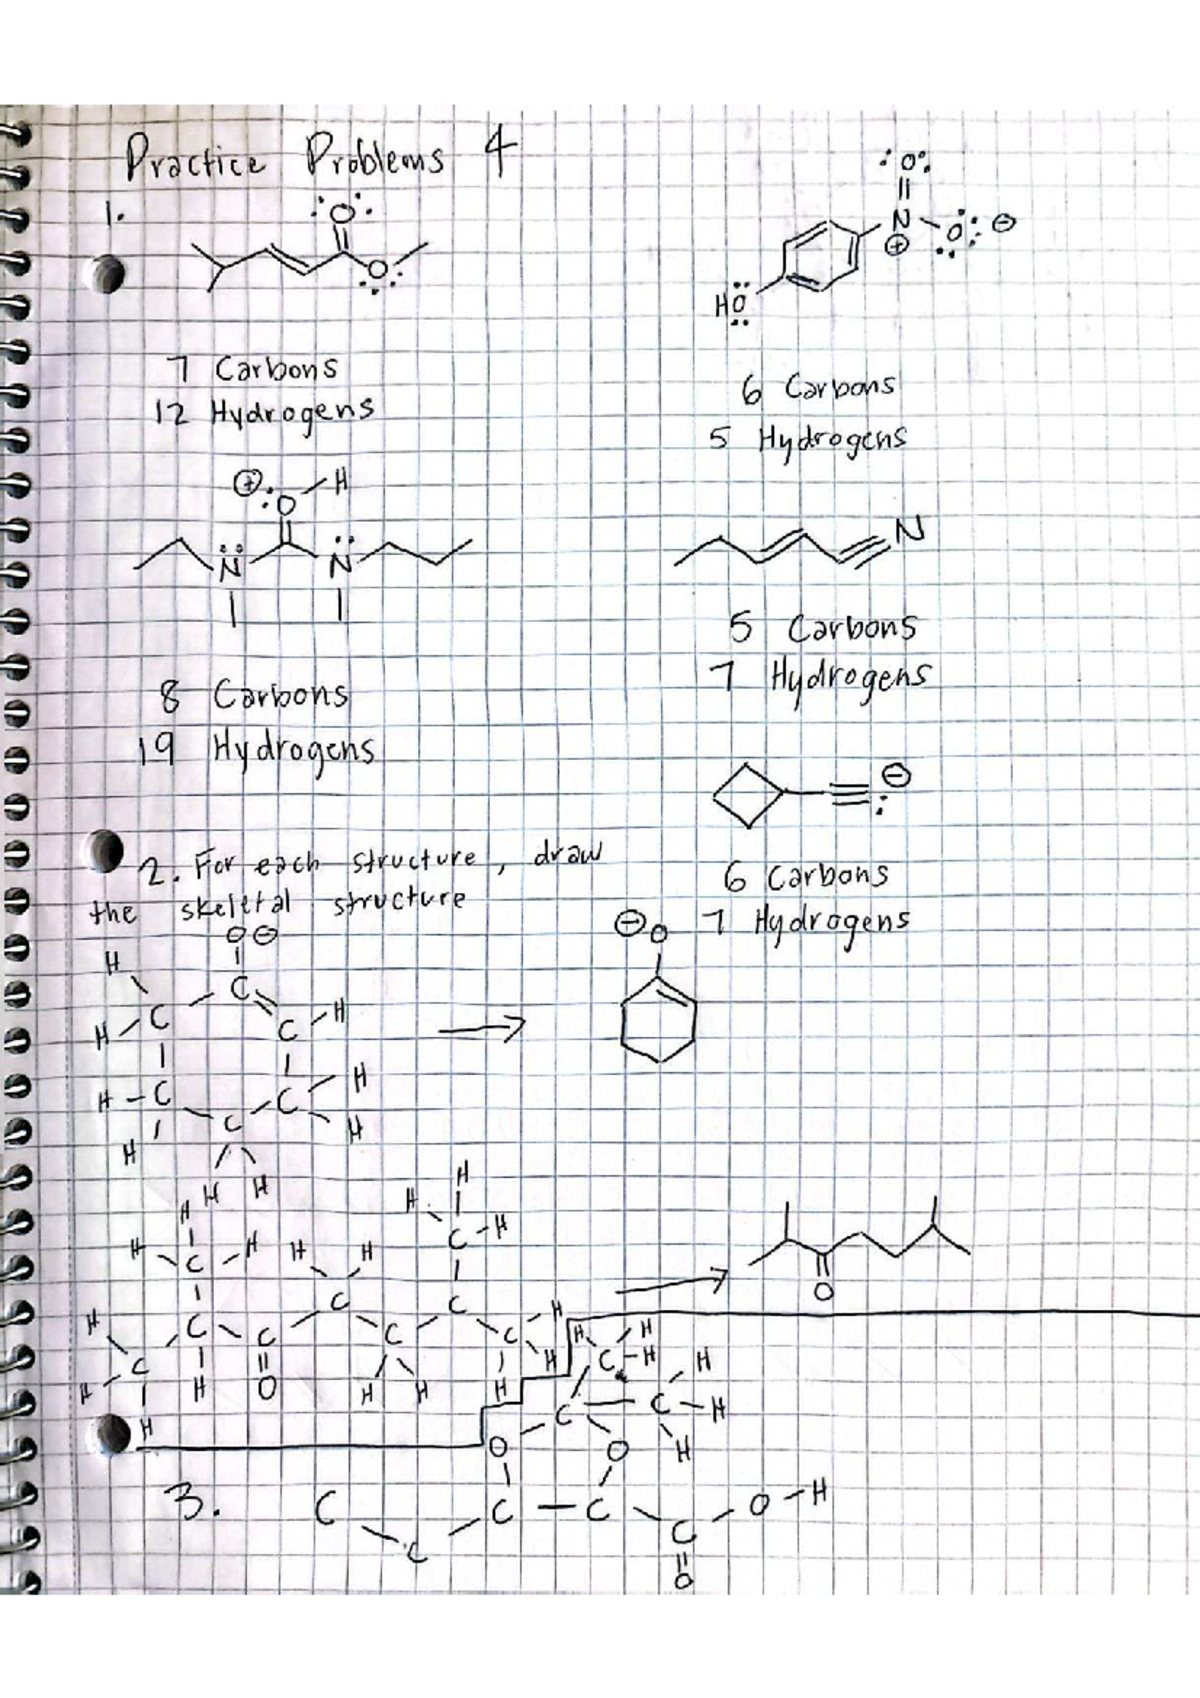 Practice Problems 4
1.
:O:
O
:O:
N
⊕
O
⊖
HO
7 Carbons
12 Hydrogens
6 Carbons
5 Hydrogens
⊕ :O-H
N N
N
5 Carbons
7 Hydrogens
8 Carbons
19 Hydrogens
⊖
:
6 Carbons
7 Hydrogens
2. For each structure, draw
the skeletal structure
O ⊖
⊖ O
H C
H C C H
H C C H
H C H
H H
H H
H C H H H C H
H C C C
H C C C C H
C H O H H H H
H
O
H C H
C H H
C C H
O O H
3. C C C O H
C C
O